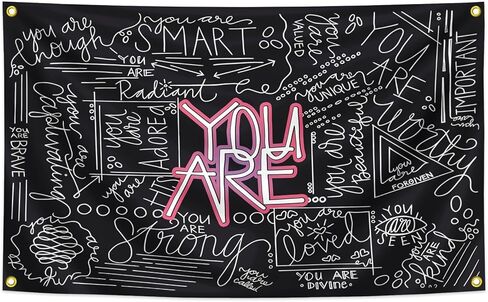 you are
enough
you are
SMART
YOU
ARE
Radiant
you
are
VALUED
YOU
ARE
IMPORTANT
you are
UNIQUE
you are
worthy
YOU
ARE
BRAVE
you are
outstanding
you
are
ADORED
YOU
ARE
you are
Beautiful
you
are
FORGIVEN
you are
YOU
ARE
Strong
you are
loved
YOU ARE
DIVINE
YOU ARE
SEEN
YOU
ARE
kind
you were
called
you
are